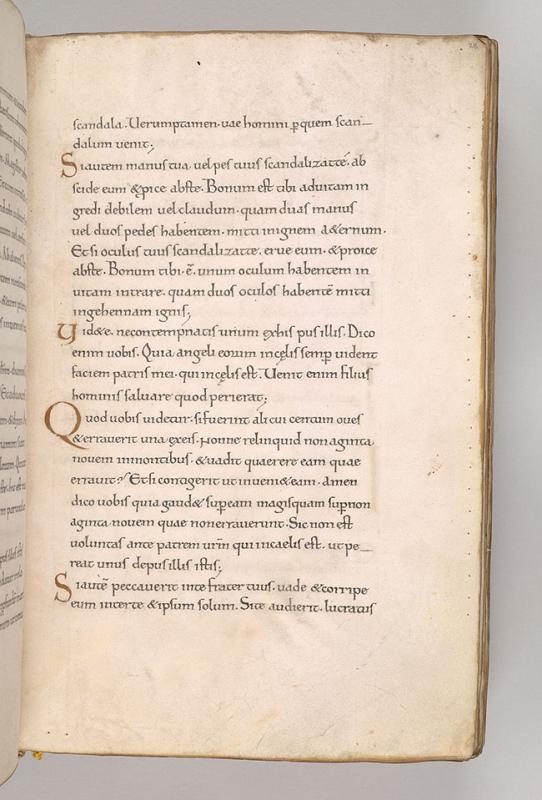 scandala. Uerumptamen. uae homini ꝑ quem scan—
dalum uenit;
Si autem manus tua, uel pes tuus scandalizat te. ab
scide eum & ꝓice abs te. Bonum est tibi ad uitam in
gredi debilem uel claudum. quam duas manus
uel duos pedes habentem. mitti in ignem a&ernum.
Et si oculus tuus scandalizat te. erue eum. & proice
abs te. Bonum tibi. ē. unum oculum habentem in
uitam intrare. quam duos oculos habentē mitti
in gehennam ignis;
Uid&e. ne contempnatis unum ex his pusillis. Dico
enim uobis. Quia angeli eorum in cęlis semꝑ uident
faciem patris mei. qui in cęlis est. Uenit enim filius
hominis saluare quod perierat;
Quod uobis uidetur. si fuerint alicui centum oues
& errauerit una ex eis. Nonne relinquid nonaginta
nouem in montibus. & uadit quaerere eam quae
errauit? Et si contigerit ut inueni& eam. amen
dico uobis quia gaud& suꝑ eam magis quam suꝑ non
aginta nouem quae non errauerunt. Sic non est
uoluntas ante patrem urm̄ qui in caelis est. ut pe—
reat unus de pusillis istis;
Si autē peccauerit in te frater tuus. uade & corripe
eum inter te & ipsum solum. Si te audierit. lucratus